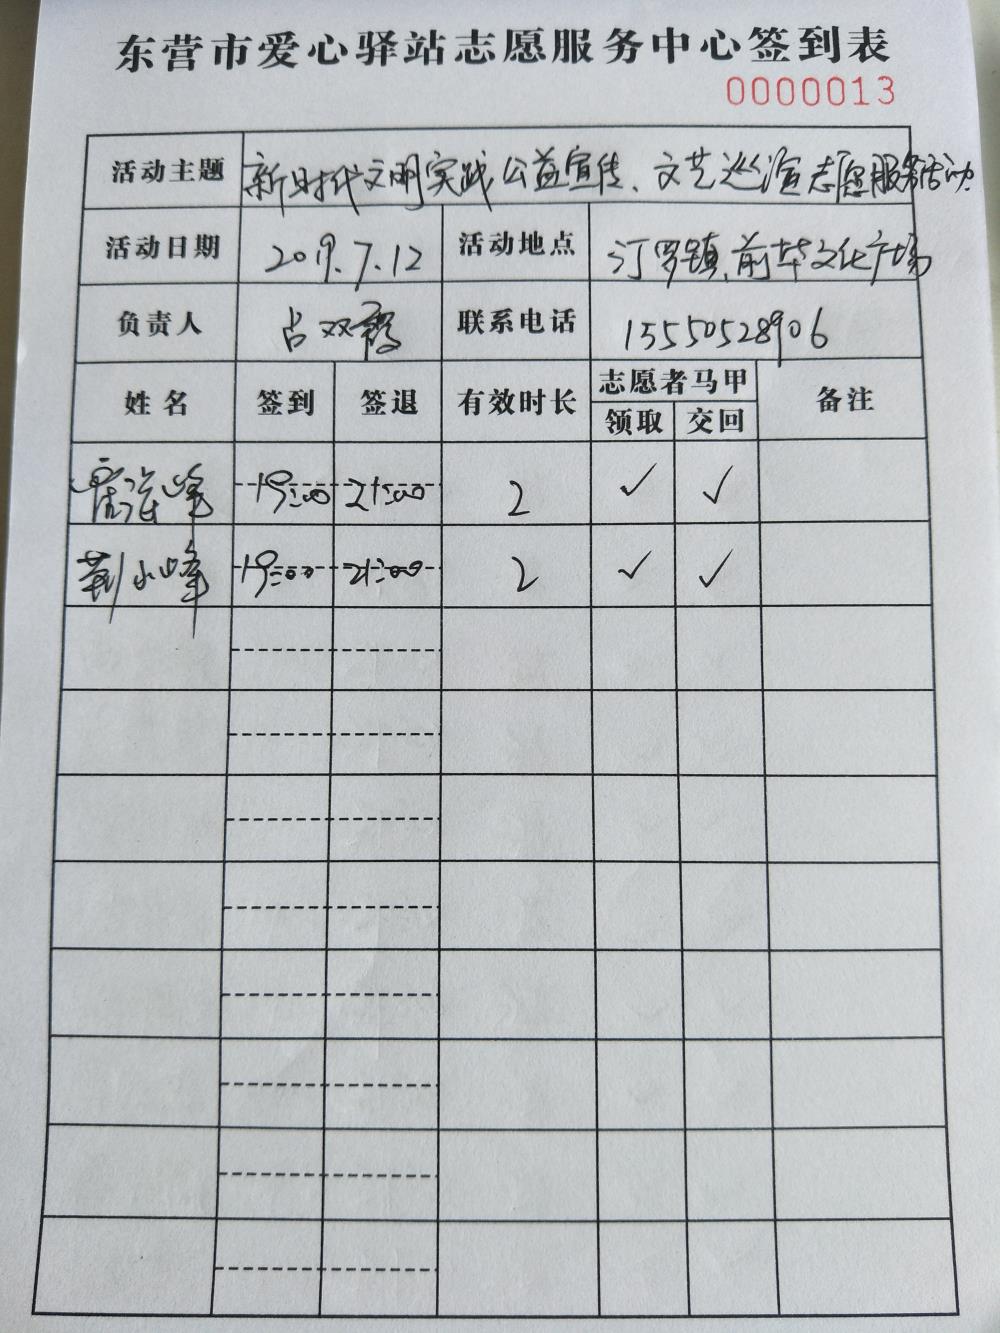 东营市爱心驿站志愿服务中心签到表
0000013
活动主题 新时代文明实践公益宣传、文艺巡演志愿服务活动
活动日期 2019.7.12 活动地点 汀罗镇前毕文化广场
负责人 占双霞 联系电话 15550528906
姓名 签到 签退 有效时长 志愿者马甲 备注
领取 交回
19:00 21:00 2 ✓ ✓
荆小峰 19:00 21:00 2 ✓ ✓